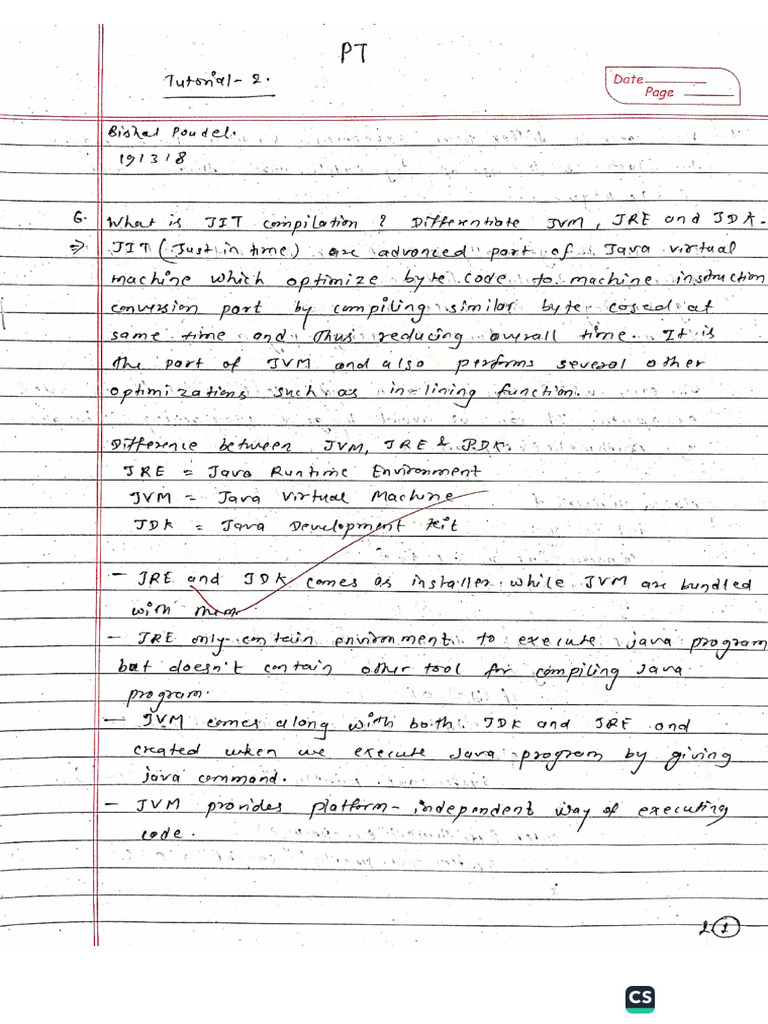 PT
Tutorial - 2.
Date
Page
Bishal Poudel.
191318
6. What is JIT compilation ? Differentiate JVM, JRE and JDK.
⇒ JIT (Just in time) are advanced part of Java virtual
machine which optimize byte code to machine instruction
conversion part by compiling similar byte cosed at
same time and thus reducing overall time. It is
the part of JVM and also performs several other
optimizations such as in-lining function.
Difference between JVM, JRE & JDK.
JRE = Java Runtime Environment
JVM = Java Virtual Machine
JDK = Java Development Kit
- JRE and JDK comes as installer while JVM are bundled
with them.
- JRE only contain environment to execute java program
but doesn't contain other tool for compiling Java
program.
- JVM comes along with both JDK and JRE and
created when we execute Java program by giving
java command.
- JVM provides platform-independent way of executing
code.
1
CS